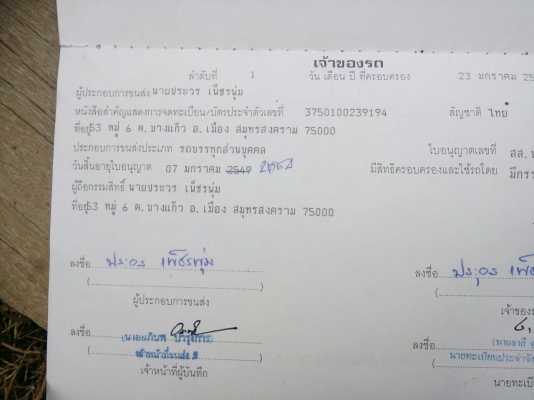 เจ้าของรถ
ลำดับที่ 1 วัน เดือน ปี ที่ครอบครอง 23 มกราคม 25
ผู้ประกอบการขนส่ง นายประวร เพ็ชรนุ่ม
หนังสือสำคัญแสดงการจดทะเบียน/บัตรประจำตัวเลขที่ 3750100239194 สัญชาติ ไทย
ที่อยู่ 53 หมู่ 6 ต.บางแก้ว อ.เมือง สมุทรสงคราม 75000
ประกอบการขนส่งประเภท รถบรรทุกส่วนบุคคล ใบอนุญาตเลขที่ สส.
วันสิ้นอายุใบอนุญาต 07 มกราคม 2549 มีสิทธิครอบครองและใช้รถโดย มีกรร
ผู้ถือกรรมสิทธิ์ นายประวร เพ็ชรนุ่ม
ที่อยู่ 53 หมู่ 6 ต.บางแก้ว อ.เมือง สมุทรสงคราม 75000
ลงชื่อ ลงชื่อ
ผู้ประกอบการขนส่ง เจ้าของร
ลงชื่อ ลงชื่อ
เจ้าหน้าที่ขนส่ง 3 นายทะเบียนประจำจัง
เจ้าหน้าที่ผู้บันทึก นายทะเบ